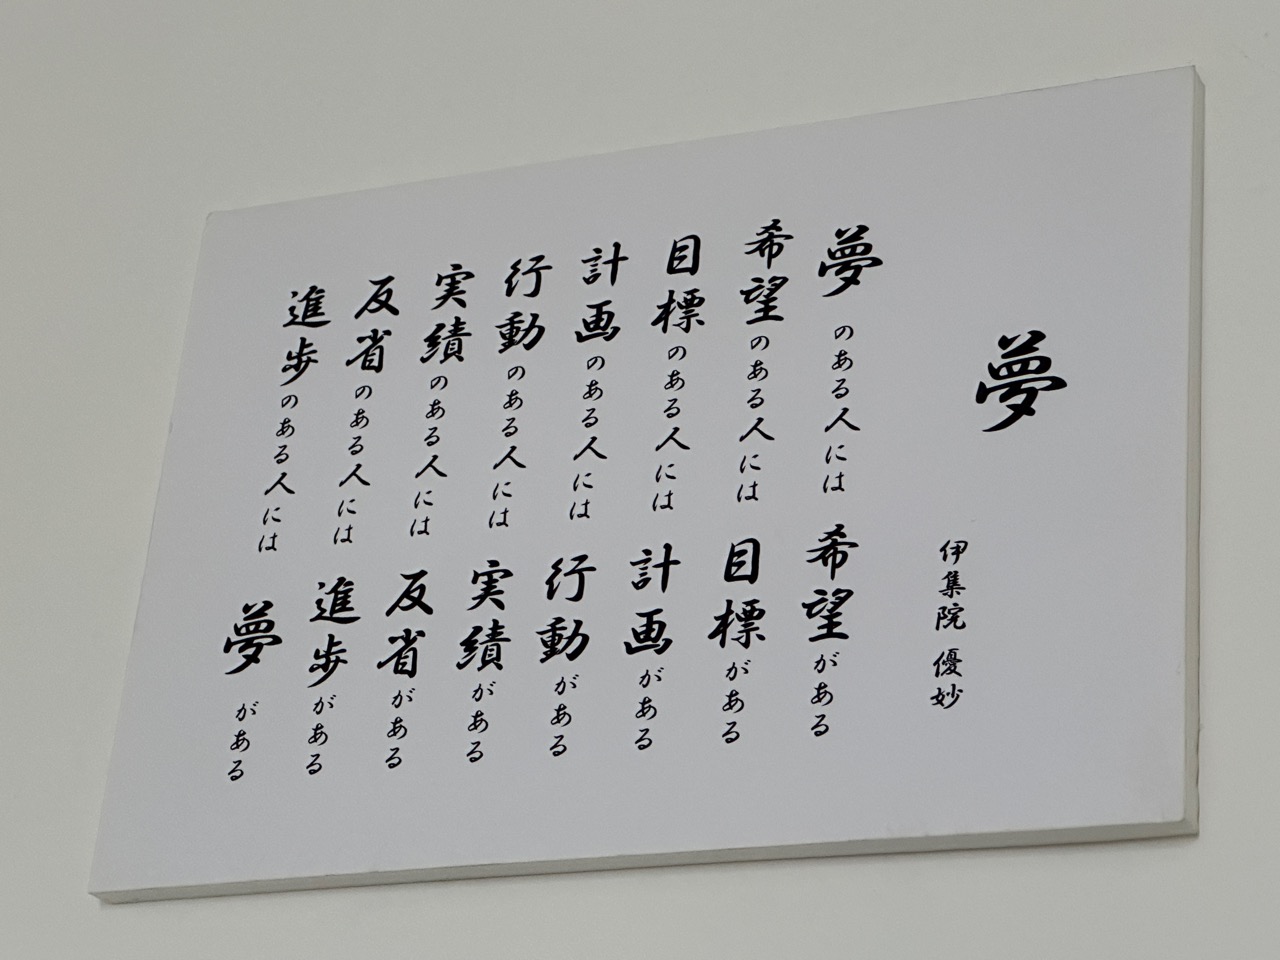 夢
伊集院 優妙
夢のある人には 希望がある
希望のある人には 目標がある
目標のある人には 計画がある
計画のある人には 行動がある
行動のある人には 実績がある
実績のある人には 反省がある
反省のある人には 進歩がある
進歩のある人には 夢がある